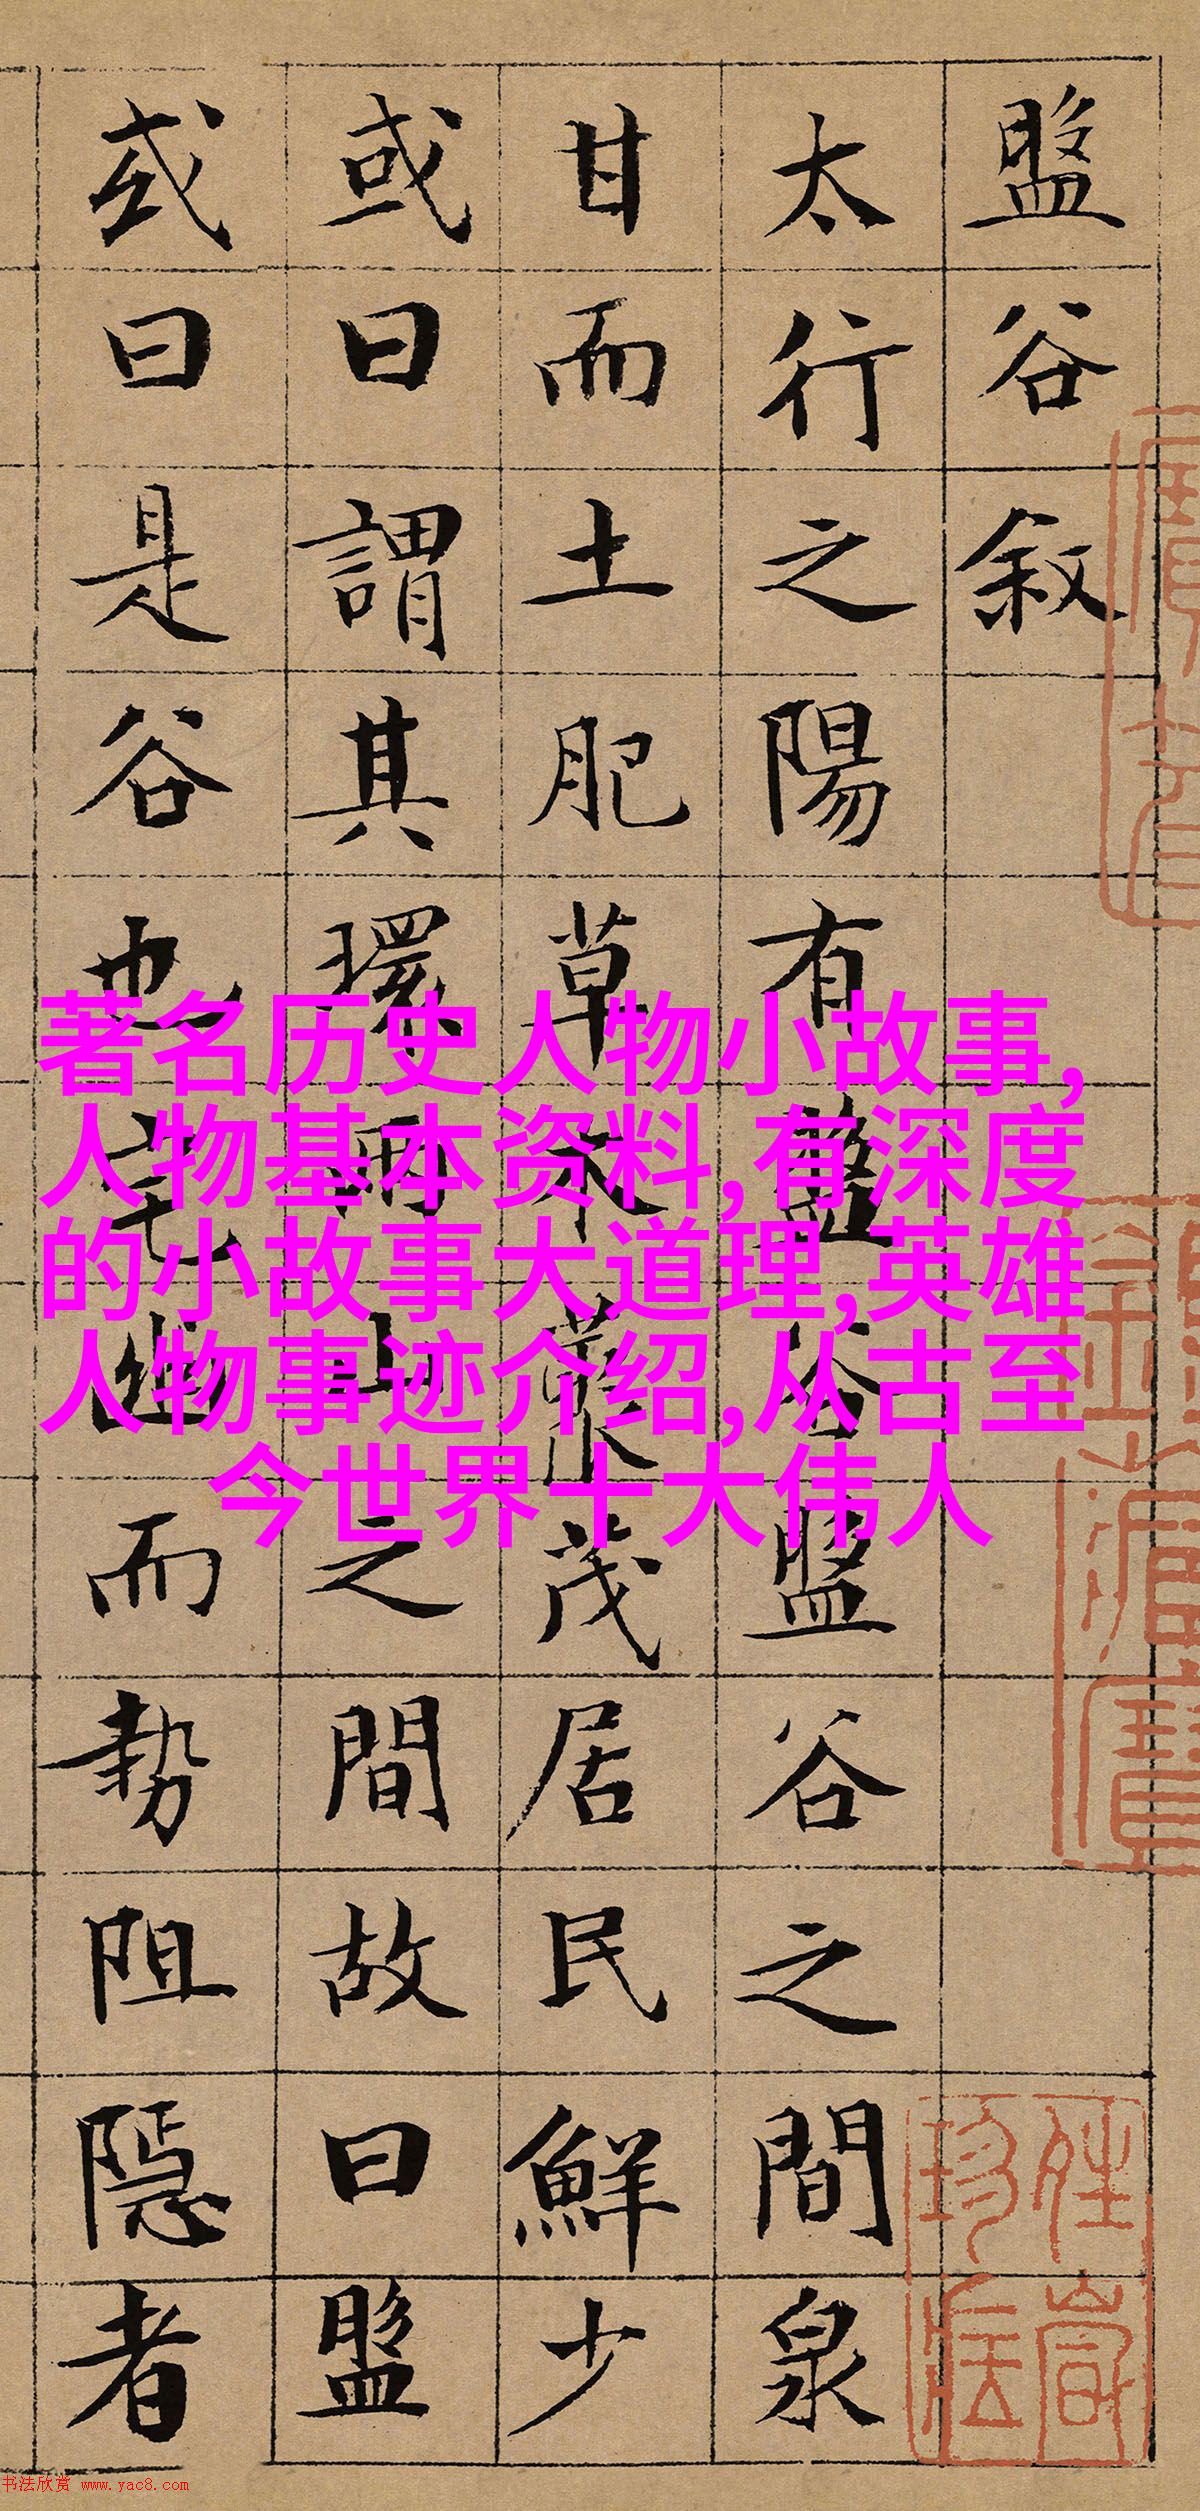 盤谷叙
太行之陽有盤谷盤谷之間泉
甘而土肥草木藂茂居民鮮少
或曰謂其環兩山之間故曰盤
或曰是谷也宅幽而勢阻隱者
著名历史人物小故事,
人物基本资料,有深度
的小故事大道理,英雄
人物事迹介绍,从古至
今世界十大伟人
书法欣赏 www.yac8.com